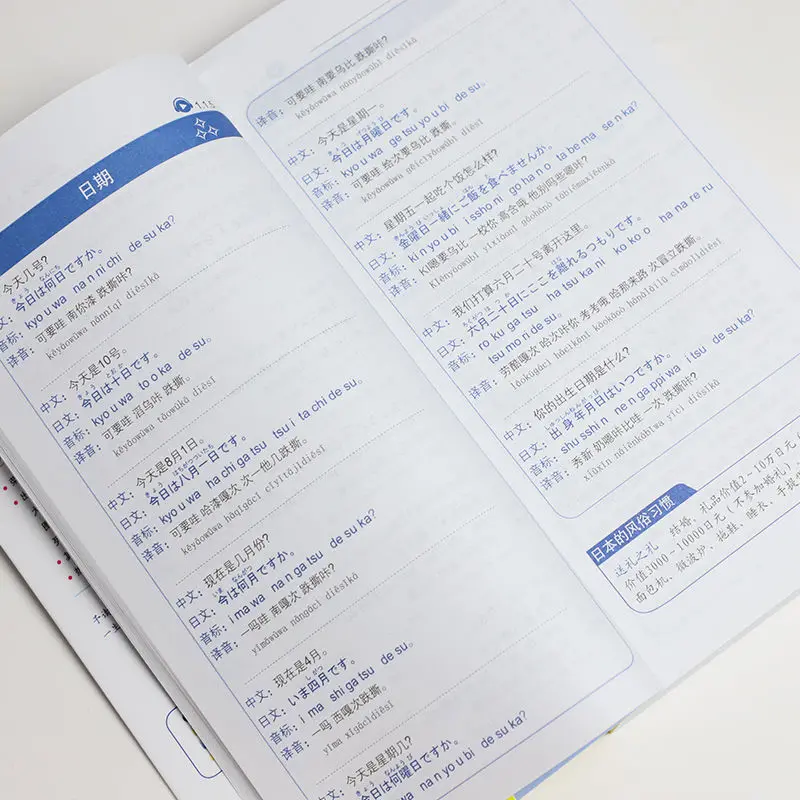 1.15
日期
今天几号?
日文: 今日は何日ですか。
音标: kyo u wa na n ni chi de su ka?
译音: 可要哇 南你漆 跌撕咔?
kěyàowūwa nánnǐqī diēsīkā
中文: 今天是10号。
日文: 今日は十日です。
音标: kyo u wa to o ka de su。
译音: 可要哇 滔乌咔 跌撕。
kěyàowūwa tāowūkā diēsī
中文: 今天是8月1日。
日文: 今日は八月一日です。
音标: kyo u wa ha chi ga tsu tsu i ta chi de su。
译音: 可要哇 哈漆嘎次 次一他几跌撕。
kěyàowūwa hāqīgācì cìyītājīdiēsī
中文: 现在是几月份?
日文: 今は何月ですか。
音标: i ma wa na n ga tsu de su ka?
译音: 一吗哇 南嘎次 跌撕咔?
yīmǎwūwa nángācì diēsīkā
中文: 现在是4月。
日文: いま四月です。
音标: i ma shi ga tsu de su。
译音: 一吗 西嘎次跌撕。
yīma xīgācìdiēsī
中文: 今天是星期几?
今日は何曜日ですか。
wa na n yo u bi de su ka?
译音: 可要哇 南要乌比 跌撕咔?
kěyàowūwa nányàowūbǐ diēsīkā
中文: 今天是星期一。
日文: 今日は月曜日です。
音标: kyo u wa ge tsu yo u bi de su。
译音: 可要哇 给次要乌比 跌撕。
kěyàowūwa gěicìyàowūbǐ diēsī
中文: 星期五一起吃个饭怎么样?
日文: 金曜日一緒にご飯を食べませんか。
音标: ki n yo u bi i ssho ni go ha n o ta be ma se n ka?
译音: KI嗯要乌比 一校你 高合哦 他别吗嗯咔?
中文: 我们打算六月二十号离开这里。
日文: 六月二十日にここを離れるつもりです。
音标: ro ku ga tsu ha tsu ka ni ko ko o ha na re ru
tsu mo ri de su。
译音: 劳酷嘎次 哈次咔你 考考哦 哈那来路 次冒立跌撕。
中文: 你的出生日期是什么?
日文: 出身年月日はいつですか。
音标: shu sshi n ne n ga ppi wa i tsu de su ka?
译音: 秀新 奶嗯咔比哇 一次 跌撕咔?
日本的风俗习惯
送礼之礼 结婚，礼品价值2~10万日元
价值3000~10000日元(不参加婚礼)
面包机、微波炉、拖鞋、睡衣、手提